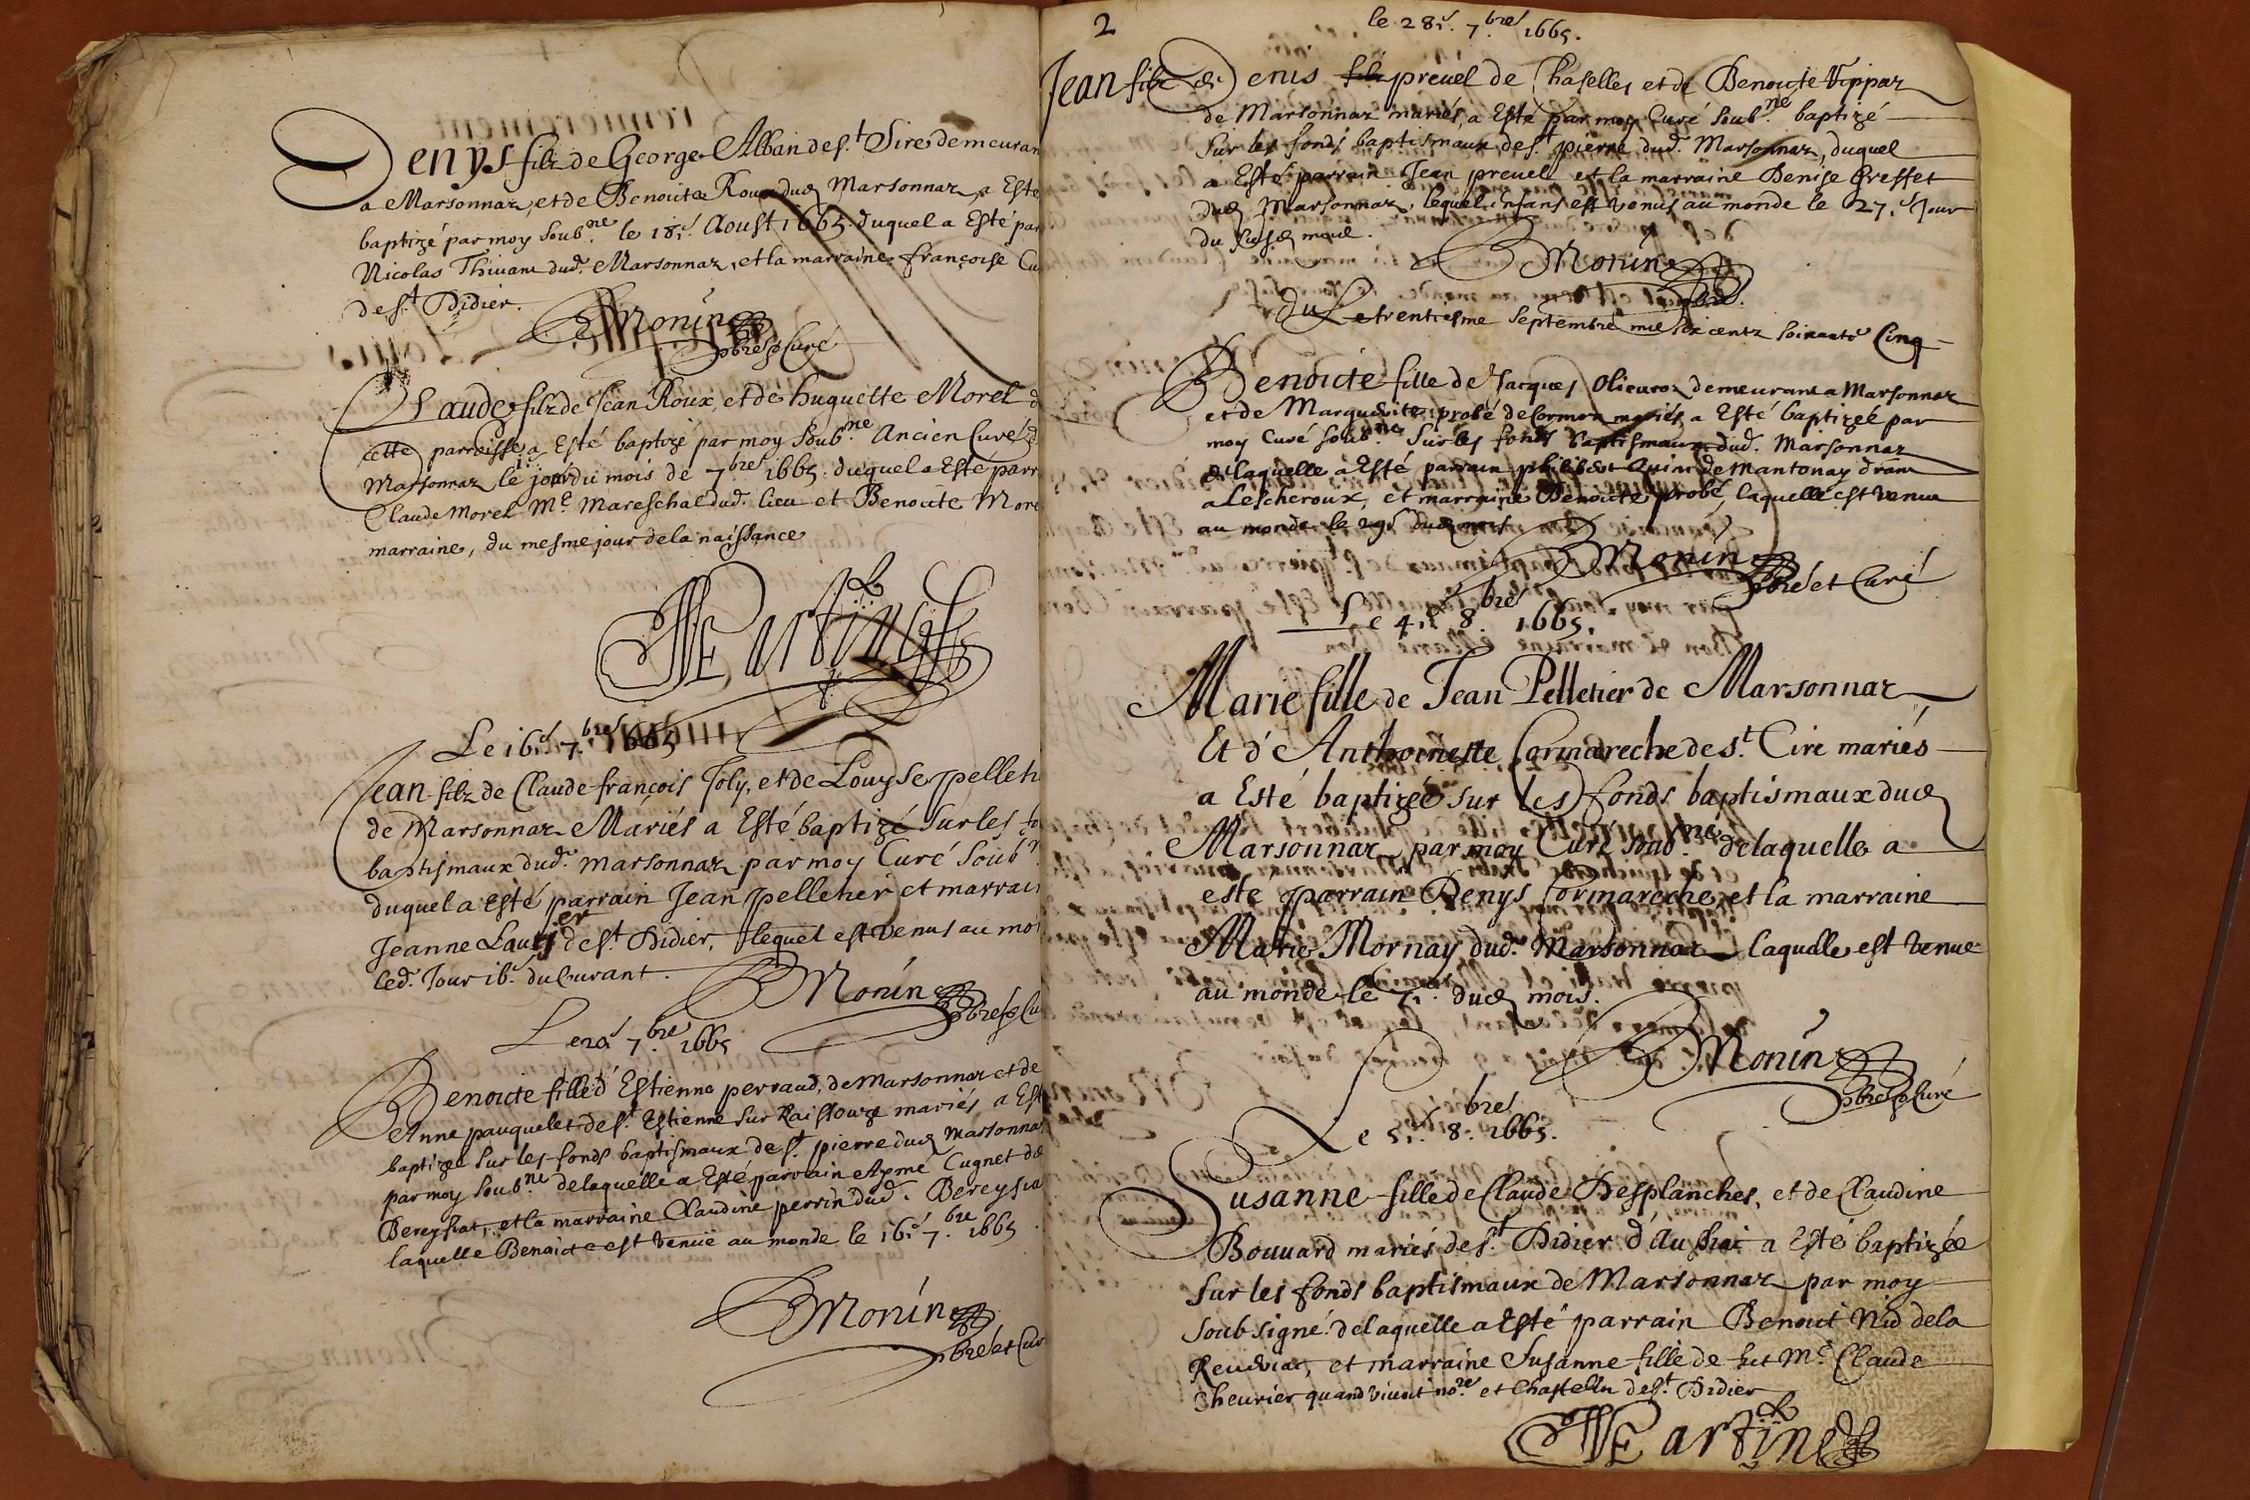 Denys filz de George Alban de s.t Sire demeuran
a Marsonnaz, et de Benoicte Roux dud Marsonnaz, a Esté
baptizé par moy soub.né le 18.e Aoust 1665. duquel a Esté par
Nicolas Thivant dud. Marsonnaz, et la marraine françoise Cu
de s.t Didier.
Monin
pbre & Curé
Claude filz de Jean Roux, et de huguette Morel d
cette parroisse a Esté baptizé par moy soub.né Ancien Curé d
Marsonnaz le 1.er jour du mois de 7.bre 1665. duquel a Esté parr
Claude Morel M.e Mareschal dud. lieu et Benoicte More
marraine, du mesme jour de la naissance
Martin
Le 16.e 7.bre 1665
Jean filz de Claude françois Joly, et de Louyse pelleti
de Marsonnaz Mariés a Esté baptizé sur les fo
baptismaux dud. Marsonnaz par moy Curé soub.n
duquel a Esté parrain Jean pelletier et marrain
Jeanne de s.t Didier, lequel est venus au mon
led. Jour 16.e du Courant.
Monin
pbre & Cu
Le 20.e 7.bre 1665
Benoicte fille d'Estienne perraud, de Marsonnaz et de
Anne pauquelet de s.t Estienne sur Raissouze mariés, a Est
baptizée sur les fonds baptismaux de s.t pierre dud Marsonnaz
par moy soub.né de laquelle a Esté parrain Aymé Cugnet de
Bereysiat, et la marraine Claudine perrin dud. Bereysia
laquelle Benoicte est venue au monde le 16.e 7.bre 1665
Monin
pbre et Cur
2
le 28.e 7.bre 1665.
Jean filz de Denis filz preuel de Chaselles et de Benoicte Vippaz
de Marsonnaz mariés, a Esté par moy Curé soub.né baptizé
sur les fonds baptismaux de s.t pierre dud. Marsonnaz, duquel
a Esté parrain Jean preuel et la marraine Denise Gresset
dud Marsonnaz, lequel enfans est venus au monde le 27.e Jour
du susd mois.
Monin
pbre.
du Le trentiesme septembre mil six centz soixante Cinq
Benoicte fille de Jacques Olieuroz demeurant a Marsonnaz
et de Marguerite probé de Cormoz mariés, a Esté baptizée par
moy Curé soub.né sur les fonds baptismaux dud. Marsonnaz
de laquelle a Esté parrain philibert de Mantonay
a Lescheroux, et marraine Benoicte probé, laquelle est venue
au monde le 29.e dud mois
Monin
pbre et Curé
Le 4.e 8.bre 1665.
Marie fille de Jean Pelletier de Marsonnaz
Et d'Anthoinette Cormareche de s.t Cire mariés
a Esté baptizée sur les fonds baptismaux dud
Marsonnaz par moy Curé soub.né de laquelle a
esté parrain Denys Cormareche, et la marraine
Marie Mornay dud. Marsonnaz laquelle est venue
au monde le dud mois.
Monin
pbre & Curé
Le 5.e 8.bre 1665.
Susanne fille de Claude Desplanches, et de Claudine
Bouuard mariés de s.t Didier d'Aussiat a Esté baptizée
sur les fonds baptismaux de Marsonnaz par moy
soub signé. de laquelle a Esté parrain Benoict Nid de la
et marraine Susanne fille de fut M.e Claude
Cheurier quand viuoit no.re et Chastelin de s.t Didier
Martin